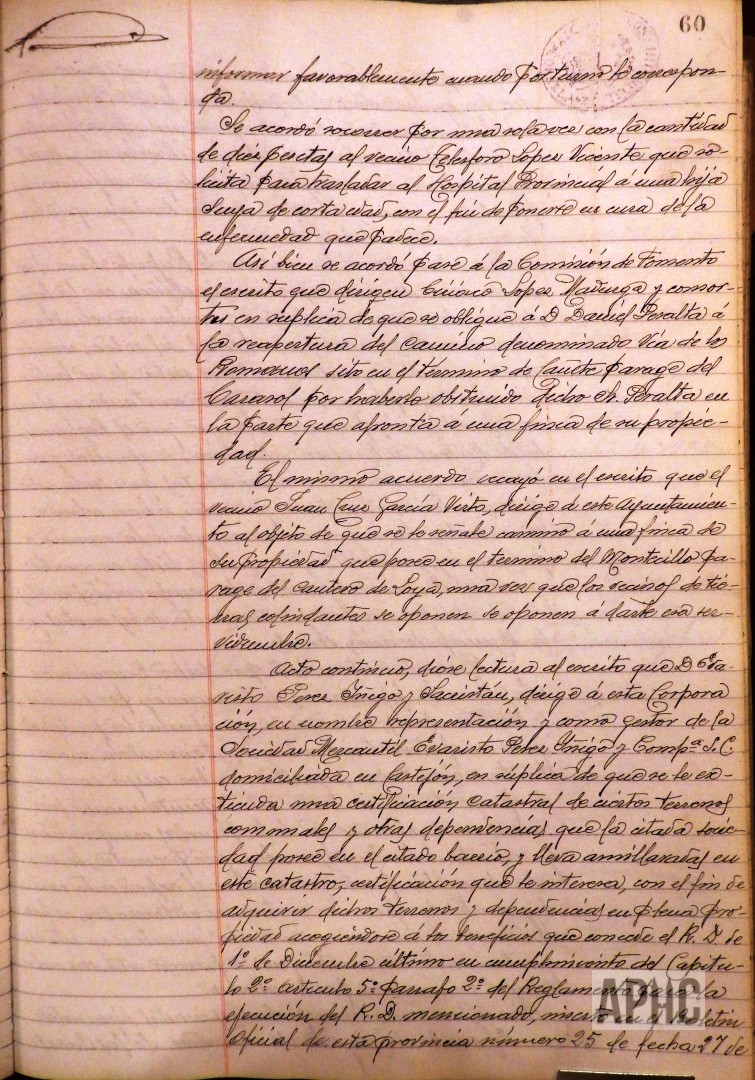 60
informar favorablemente cuando por turno le correspon-
da.
Se acordó socorrer por una sola vez con la cantidad
de diez pesetas al vecino Telesforo Lopez Vicente que so-
licita para trasladar al Hospital Provincial á una hija
suya de corta edad, con el fin de ponerse en cura de la
enfermedad que padece.
Asi bien se acordó pase á la Comisión de Fomento
el escrito que dirigen Ciriaco Lopez Maturga y consor-
tes en súplica de que se obligue á D. Daniel Peralta á
la reapertura del camino denominado Via de los
Romanos sito en el término de Cañete parage del
Carasol por haberlo obstruido dicho Sr. Peralta en
la parte que afronta á una finca de su propie-
dad.
El mismo acuerdo recayó en el escrito que el
vecino Juan Cruz García Virto, dirige á este Ayuntamien-
to al objeto de que se le señale camino á una finca de
su propiedad que posee en el termino del Montecillo pa-
rage del Cantero de Loya, una vez que los vecinos de tie-
rras colindantes se oponen se oponen á darle esa ser-
vidumbre.
Acto continuo, dióse lectura al escrito que D. Eva-
risto Perez Iñigo y Sacristán, dirige á esta Corpora
ción, en nombre representación y como gestor de la
Sociedad Mercantil Evaristo Perez Iñigo y Compª. S. C.
domiciliada en Castejón, en súplica de que se le ex-
tienda una certificación catastral de ciertos terrenos
comunales y otras dependencias que la citada socie-
dad posee en el citado barrio, y lleva amillaradas en
este catastro, certificación que le interesa, con el fin de
adquirir dichos terrenos y dependencias en plena pro-
piedad acogiéndose á los beneficios que concede el R. D. de
1º de Diciembre último en cumplimiento del Capitu-
lo 2º artículo 5º párrafo 2º del Reglamento para la
ejecución del R. D. mencionado, inserto en el Boletin
Oficial de esta provincia número 25 de fecha 27 de
APHC